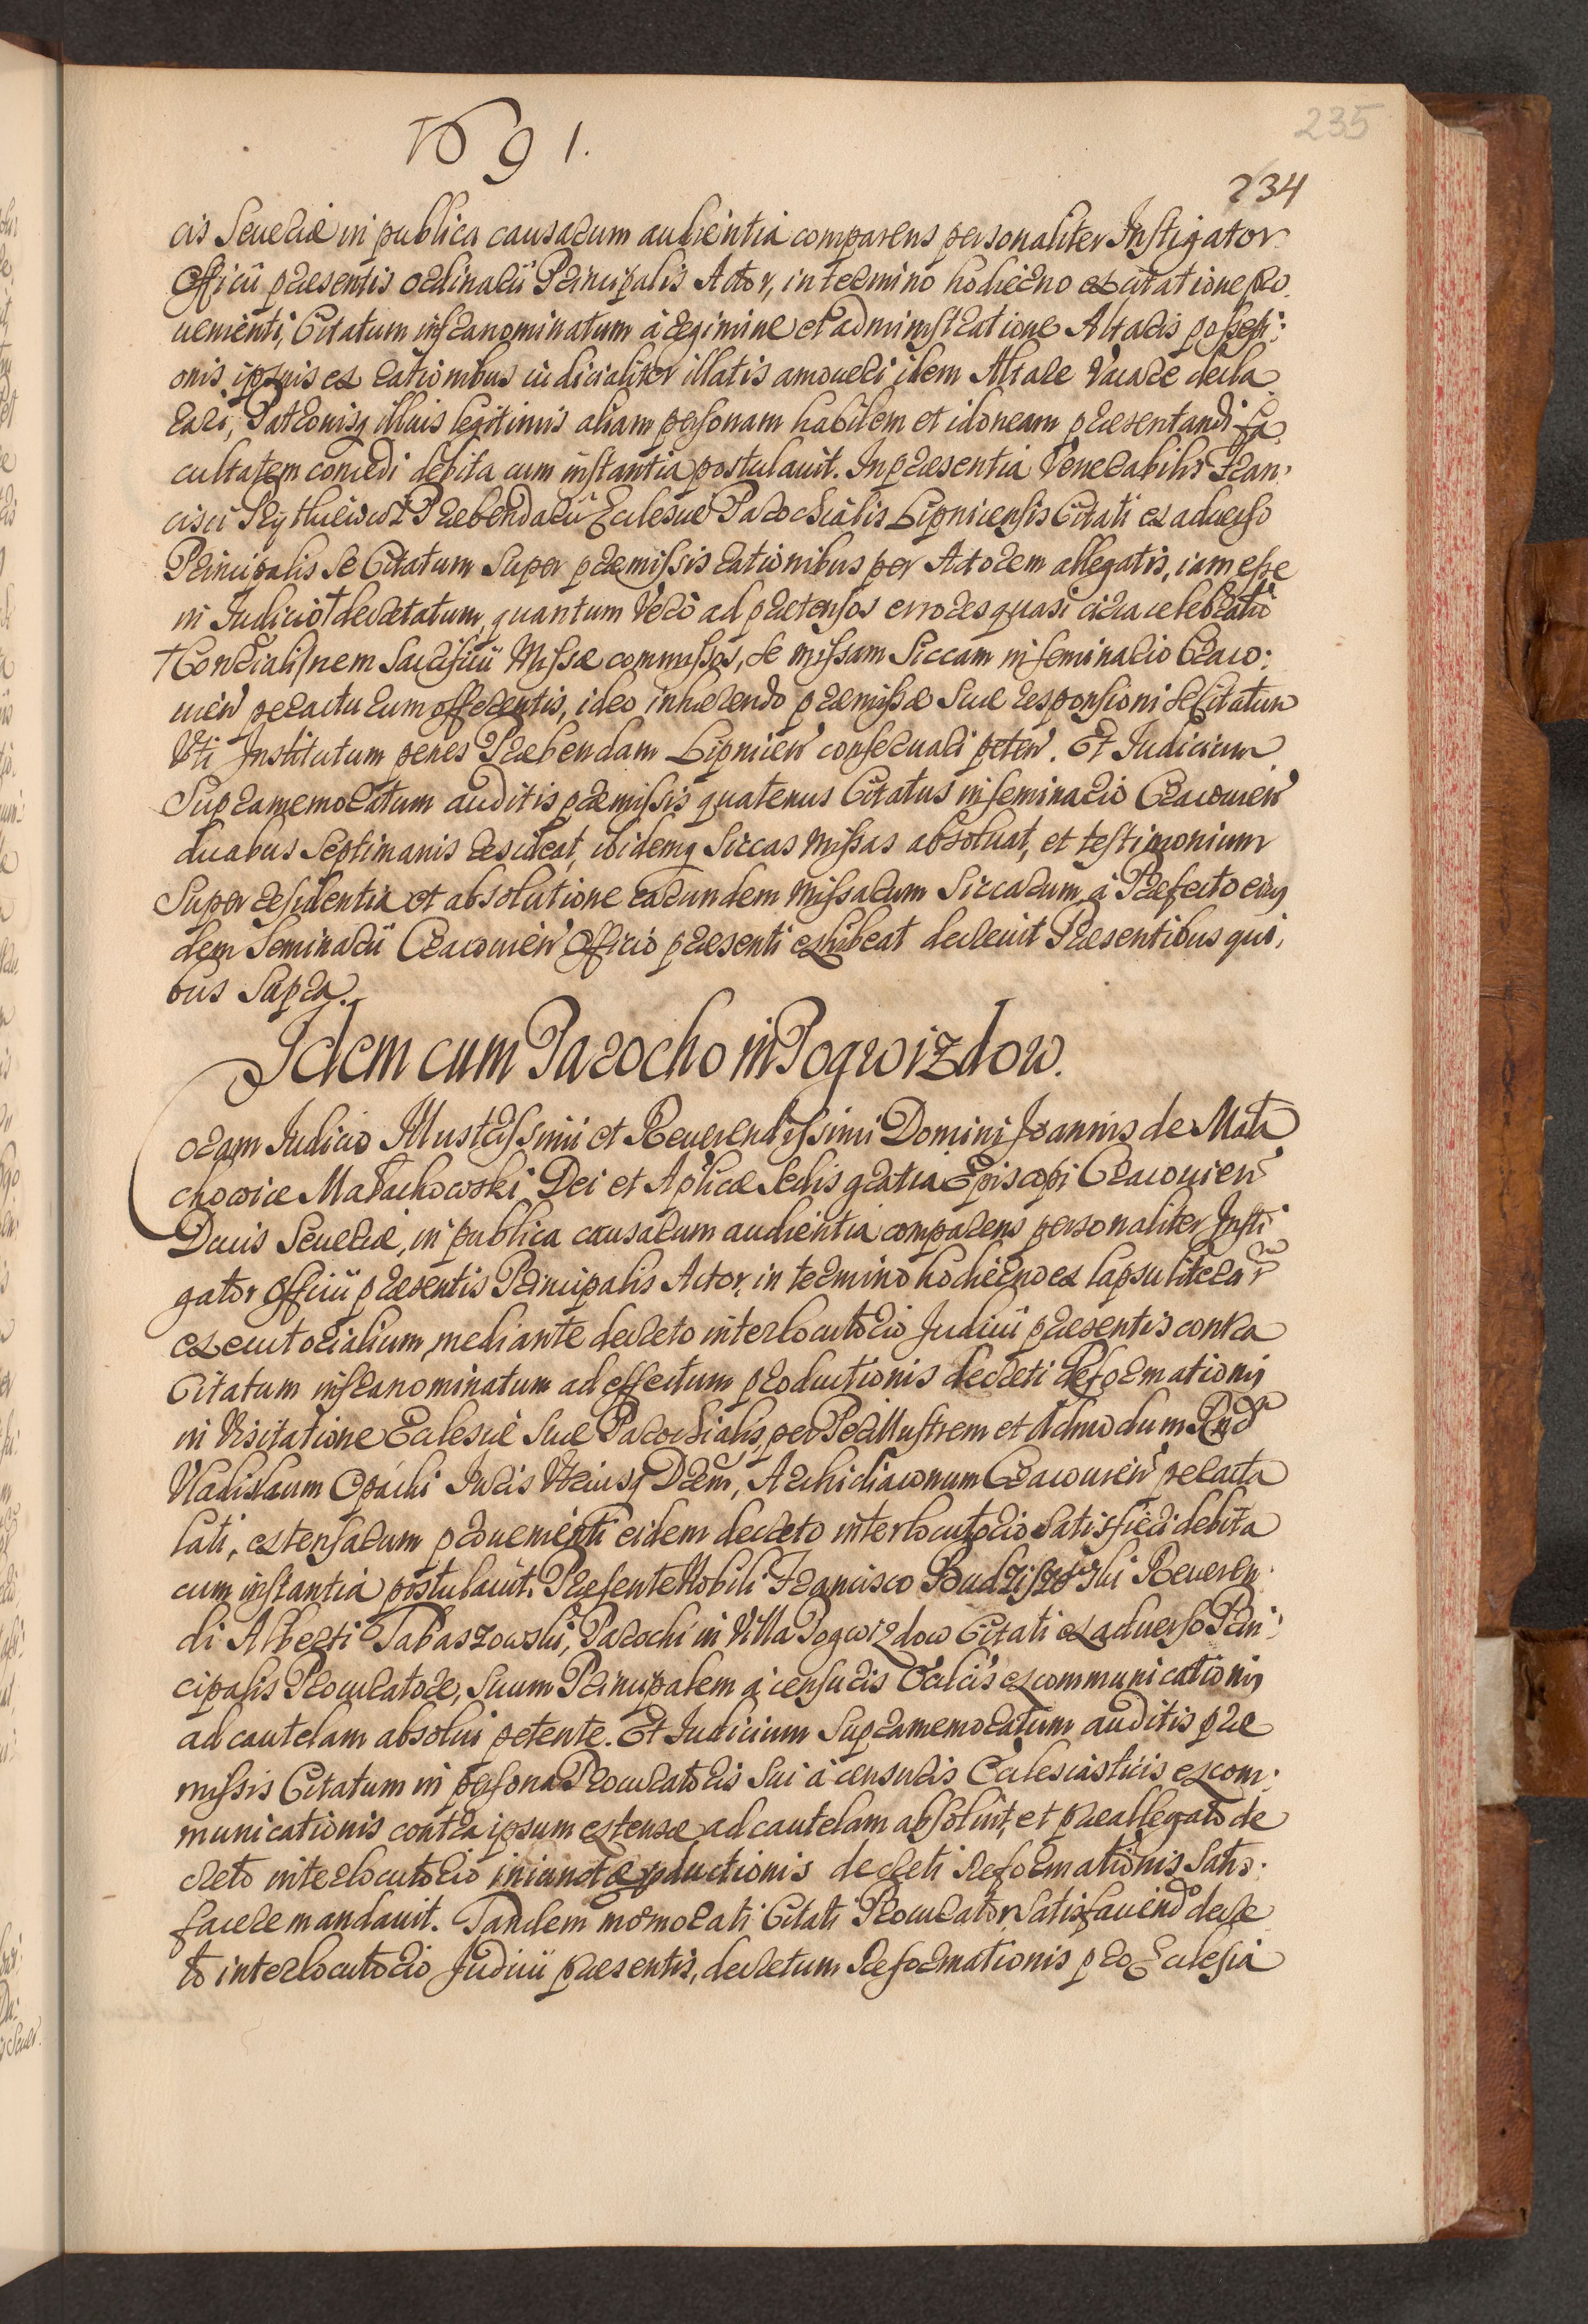 1691.
235
234
cis Seueriæ in publica causarum audientia comparens personaliter Instigator
Officii præsentis ordinarii Principalis Actor, in termino hodierno ex citatione pro
uenienti, Citatum infranominatum à regimine et administratione Altaris possessi:
onis ipsius ex rationibus iudicialiter illatis amoueri idem Altare Vacare decla
rari, Patronisq illius legitimis aliam personam habilem et idoneam præsentandi fa
cultatem concedi debita cum instantia postulauit. In præsentia Venerabilis Fran,
cisci Præbendarii Ecclesiæ Parochialis Lipnicensis Citati ex aduerso
Principalis se Citatum Super præmissis rationibus per Actorem allegatis, iam esse
in Judicio † decretatum, quantum Verò ad prætensos errores quasi circa celebratio
† Consiali nem Sacrificii Missæ commissos, se missam Siccam in seminario Craco:
uień peracturum offerentis, ideo inhærendo præmissæ Suæ responsioni se Citatum
Vti Institutum penes Præbendam Lipniceń conseruari peteń. Et Judicium
Supramemoratum auditis præmissis quatenus Citatus in seminario Cracouień
duabus Septimanis resideat, ibidemq Siccas Missas absoluat, et testimonium
Super residentia et absolutione earundem Missarum Siccarum à Præfecto eius
dem Seminarii Cracouień Officio præsenti exhibeat decreuit Præsentibus qui,
bus Supra.
Idem cum Parocho in Pogwizdow.
Coram Judicio Illustrissimi et Reuerendissimi Domini Joannis de Mała
chowice Małachowski Dei et Aplicæ Sedis gratia Episcopi Cracouień
Ducis Seueriæ, in publica causarum audientia comparens personaliter Insti
gator Officii præsentis Principalis Actor, in termino hodierno ex lapsu literar
executorialium mediante decreto interlocutorio Judicii præsentis contra
Citatum infranominatum ad effectum productionis decreti Reformationis
in Visitatione Ecclesiæ Suæ Parochialis, per Perillustrem et Admodum Rnd
Vladislaum Opacki Juris Vtriusq Drem, Archidiaconum Cracouień peracta
lati, extensarum prouenienti eidem decreto interlocutorio Satisfieri debita
cum instantia postulauit. Præsente Nobili Francisco Reueren:
di Alberti Tabaszowski, Parochi in Villa Pogwizdow Citati ex aduerso Prin:
cipalis Procuratore, Suum Principalem à censuris Ecclcis excommunicationis
ad cautelam absolui petente. Et Judicium Supramemoratum auditis præ
missis Citatum in persona Procuratoris Sui à censuris Ecclesiasticis excom:
municationis contra ipsum extensæ ad cautelam absoluit, et præallegato de
creto interlocutorio iniunctæ pductionis decreti Reformationis Satis:
facere mandauit. Tandem memorati Citati Procurator, Satisfaciendo decre
to interlocutorio Judicii præsentis, decretum Reformationis pro Ecclesia